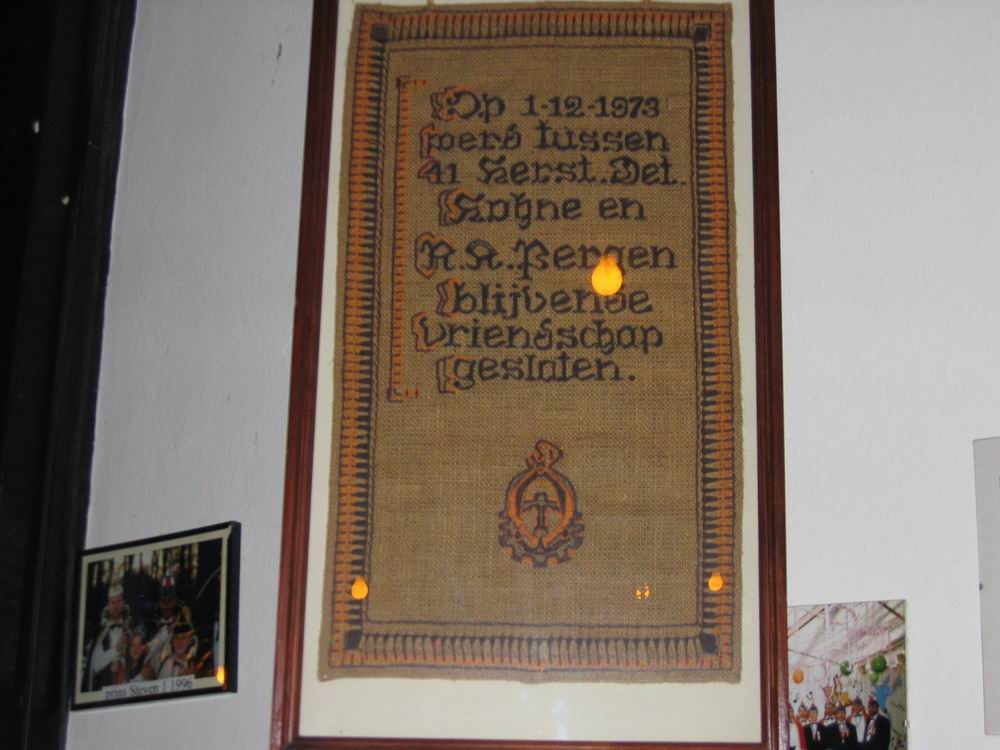 Op 1-12-1973
werd tussen
41 Herst. Det.
Kohne en
R.K. Bergen
blijvende
vriendschap
gesloten.
prins Steven I 1996